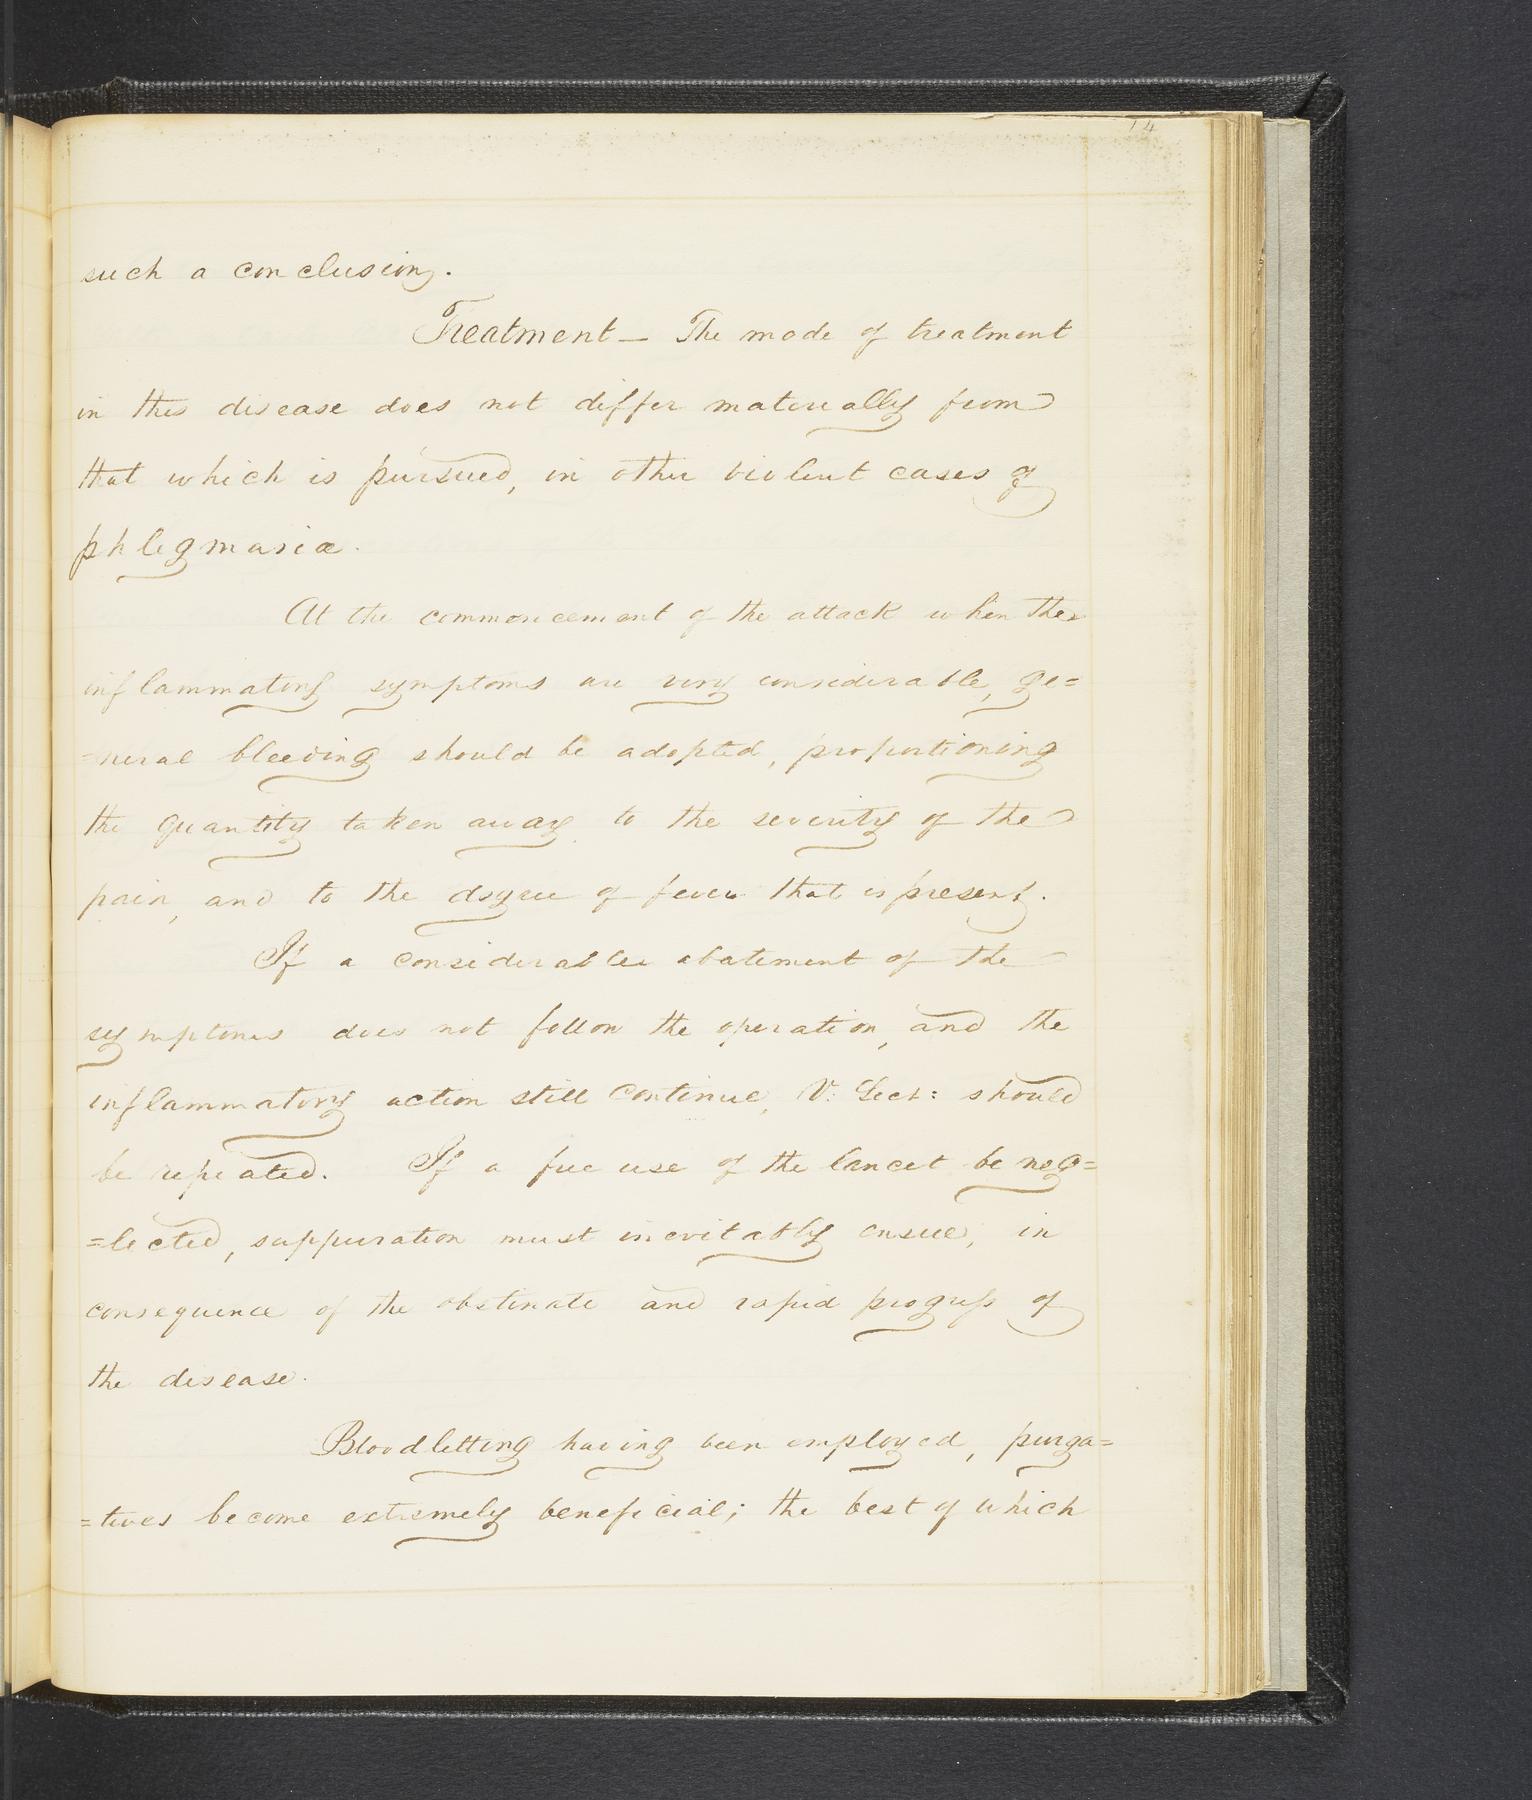 14
such a conclusion.
Treatment — The mode of treatment
in this disease does not differ materially from
that which is pursued, in other violent cases of
phlegmasiæ.
At the commencement of the attack when the
inflammatory symptoms are very considerable, ge=
=neral bleeding should be adopted, proportioning
the quantity taken away to the severity of the
pain, and to the degree of fever that is present.
If a considerable abatement of the
symptoms does not follow the operation, and the
inflammatory action still continue, V: Sect: should
be repeated. If a free use of the lancet be neg=
=lected, suppuration must inevitably ensue, in
consequence of the obstinate and rapid progress of
the disease.
Bloodletting having been employed, purga=
=tives become extremely beneficial; the best of which